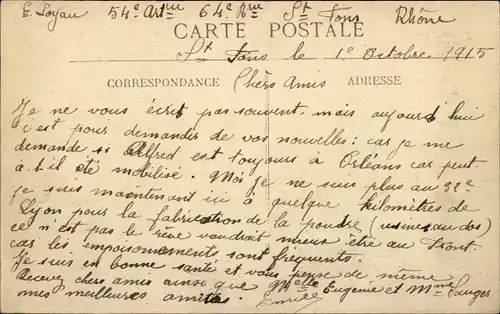 E. Loyau 54e Artrie 64e Brie St Fons Rhône
CARTE POSTALE
St Fons le 1e Octobre 1915
CORRESPONDANCE Chèrs Amis ADRESSE
Je ne vous écrit pas souvent, mais aujourd'hui
c'est pour demander de vos nouvelles; car je me
demande si Alfred est toujours à Orléans car peut-
à t-il été mobilisé. Moi je ne suis plus au 32e
je suis maintenant ici à quelque kilomètres de
Lyon pour la fabrication de la poudre, (usines au dos)
ce n'est pas le rêve vaudrait mieux être au Front.
car les empoisonnements sont fréquents.
Je suis en bonne santé et vous pense de même
Recevez chers amis ainsi que Melle Eugénie et Mme Sauger
mes meilleures amitiés. Emile